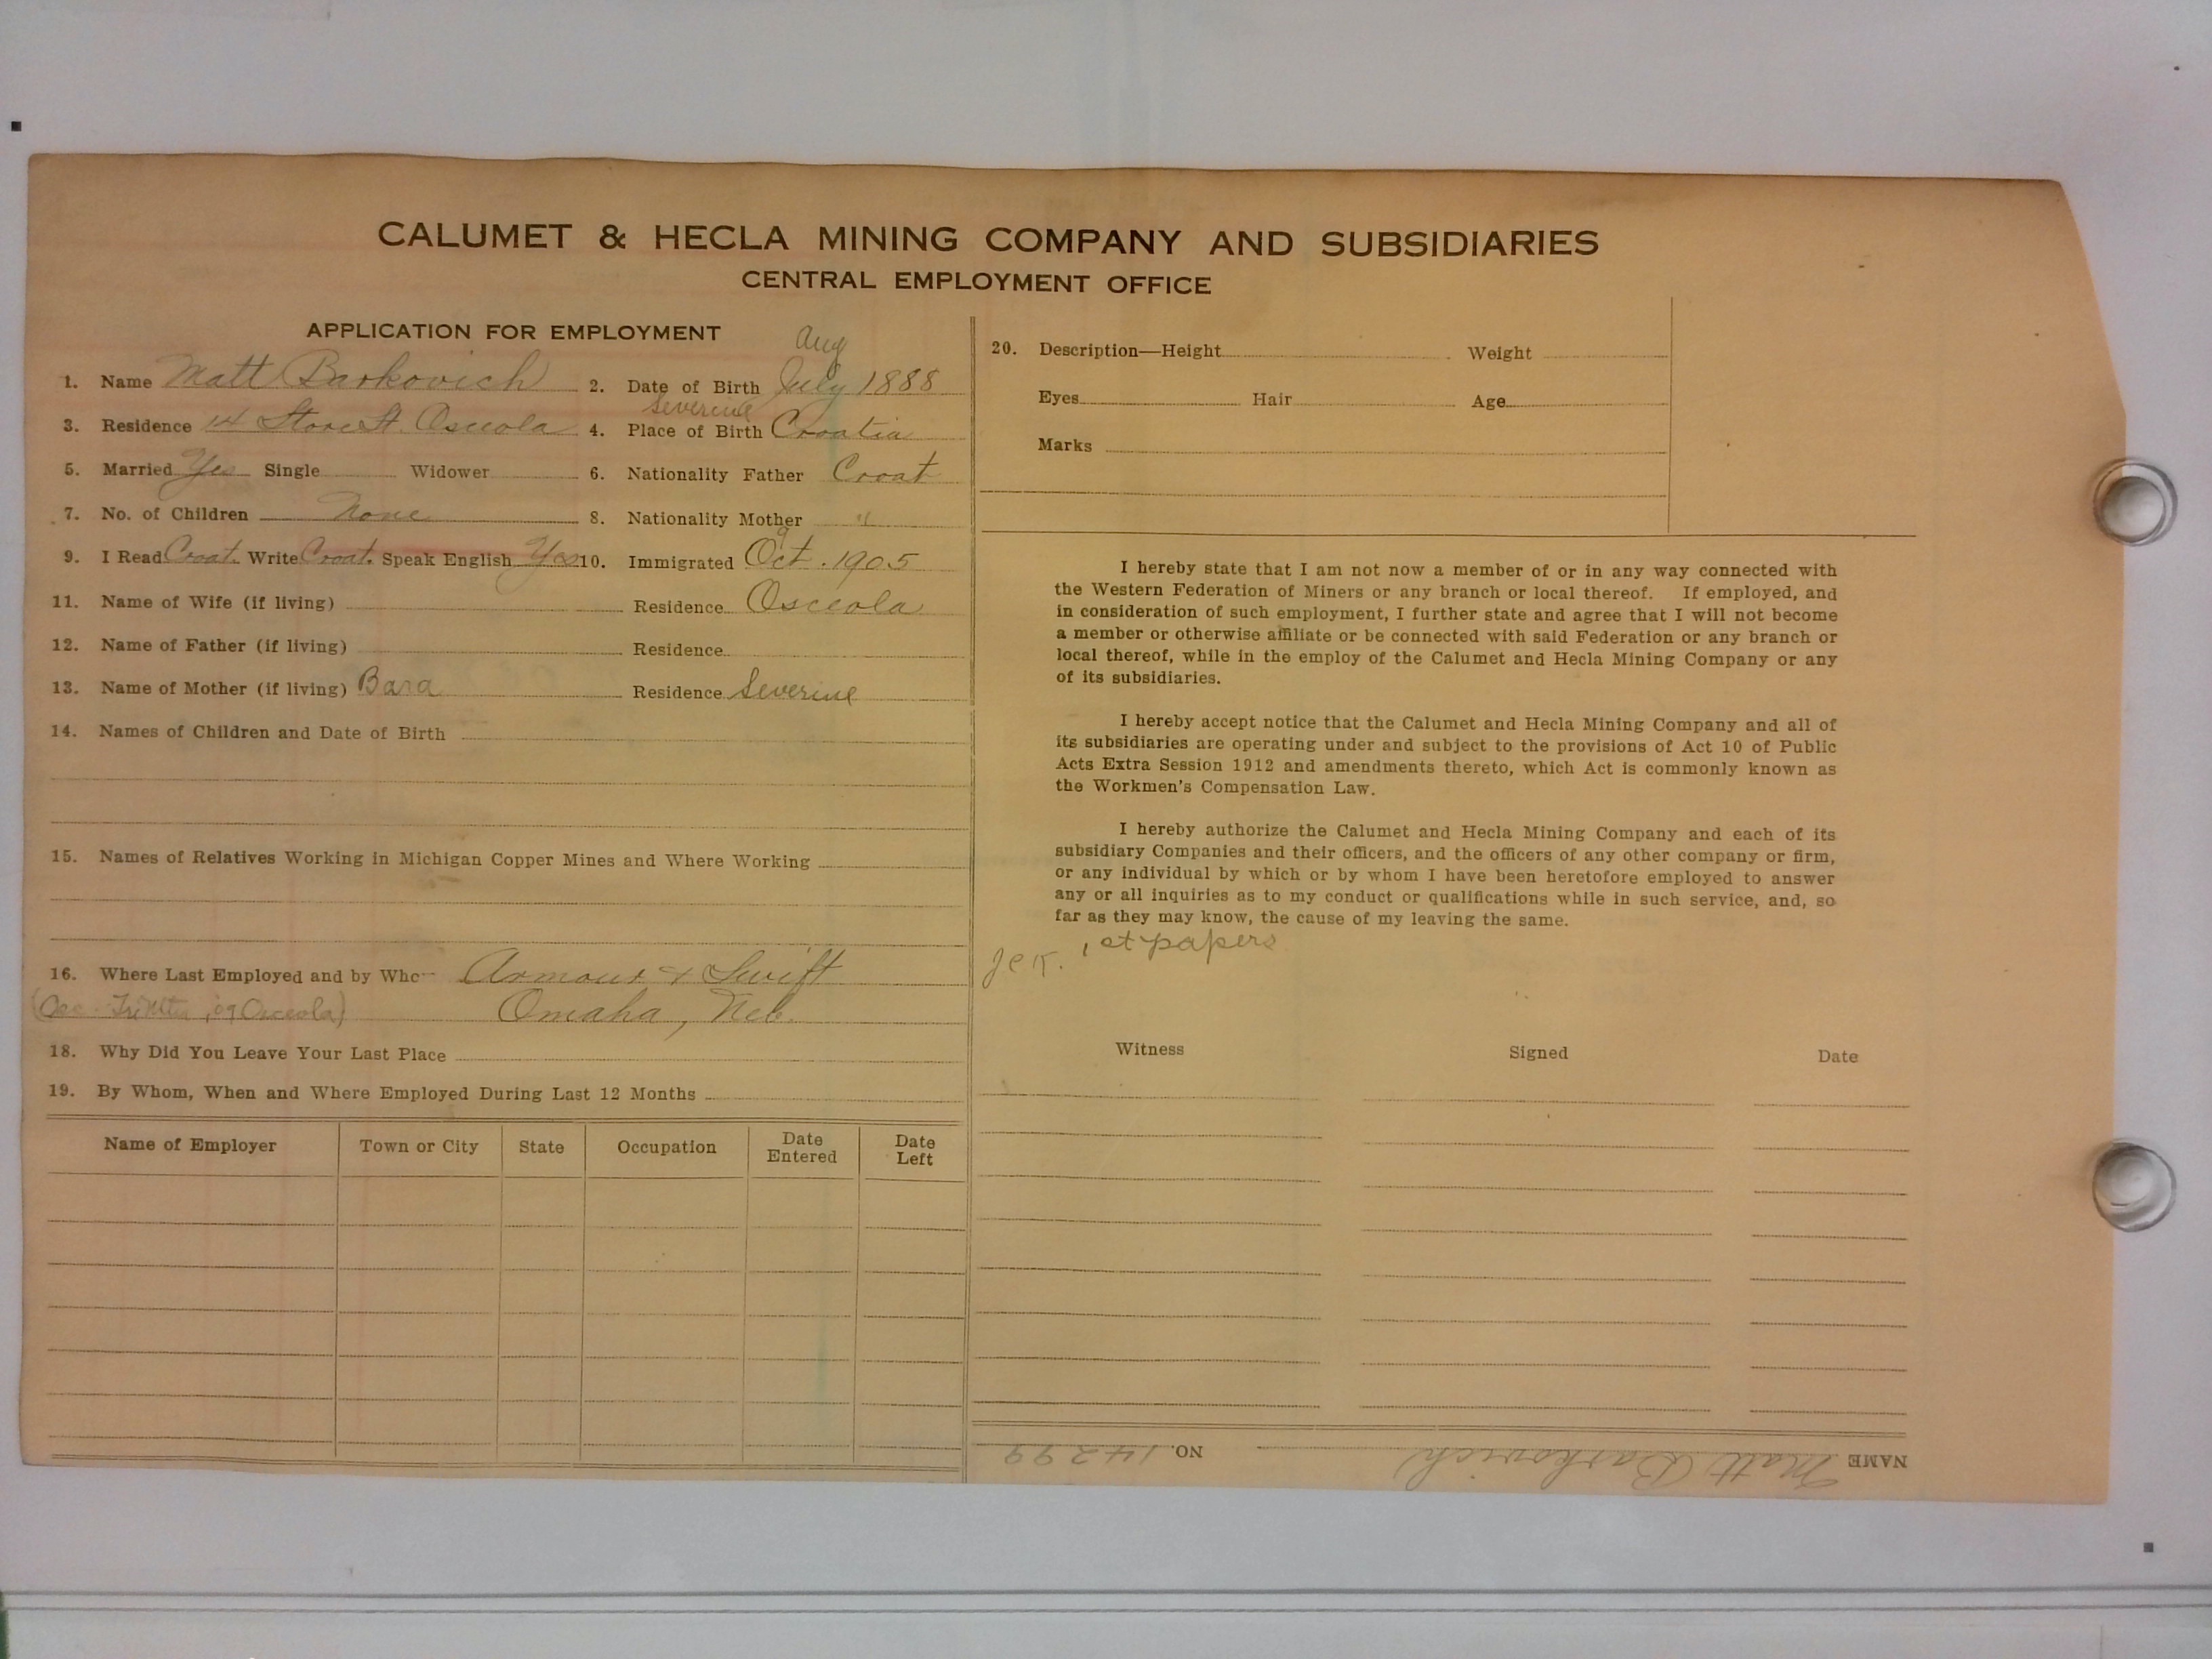 CALUMET & HECLA MINING COMPANY AND SUBSIDIARIES
CENTRAL EMPLOYMENT OFFICE
APPLICATION FOR EMPLOYMENT
Aug
1. Name Matt Barkovich 2. Date of Birth July 1888
Severine
3. Residence 14 Store St. Osceola 4. Place of Birth Croatia
5. Married Yes Single Widower 6. Nationality Father Croat
7. No. of Children None 8. Nationality Mother "
9
9. I Read Croat. Write Croat. Speak English Yes 10. Immigrated Oct. 1905
11. Name of Wife (if living) Residence Osceola
12. Name of Father (if living) Residence
13. Name of Mother (if living) Bara Residence Severine
14. Names of Children and Date of Birth
15. Names of Relatives Working in Michigan Copper Mines and Where Working
16. Where Last Employed and by Who Armour & Swift
'09 Osceola) Omaha, Neb.
18. Why Did You Leave Your Last Place
19. By Whom, When and Where Employed During Last 12 Months
Name of Employer Town or City State Occupation Date Entered Date Left
20. Description—Height Weight
Eyes Hair Age
Marks
I hereby state that I am not now a member of or in any way connected with
the Western Federation of Miners or any branch or local thereof. If employed, and
in consideration of such employment, I further state and agree that I will not become
a member or otherwise affiliate or be connected with said Federation or any branch or
local thereof, while in the employ of the Calumet and Hecla Mining Company or any
of its subsidiaries.
I hereby accept notice that the Calumet and Hecla Mining Company and all of
its subsidiaries are operating under and subject to the provisions of Act 10 of Public
Acts Extra Session 1912 and amendments thereto, which Act is commonly known as
the Workmen's Compensation Law.
I hereby authorize the Calumet and Hecla Mining Company and each of its
subsidiary Companies and their officers, and the officers of any other company or firm,
or any individual by which or by whom I have been heretofore employed to answer
any or all inquiries as to my conduct or qualifications while in such service, and, so
far as they may know, the cause of my leaving the same.
1st papers
Witness Signed Date
NAME Matt Barkovich NO. 14299